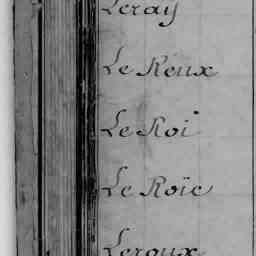 Leray
Le Reux
Le Roi
Le Roïe
Leroux